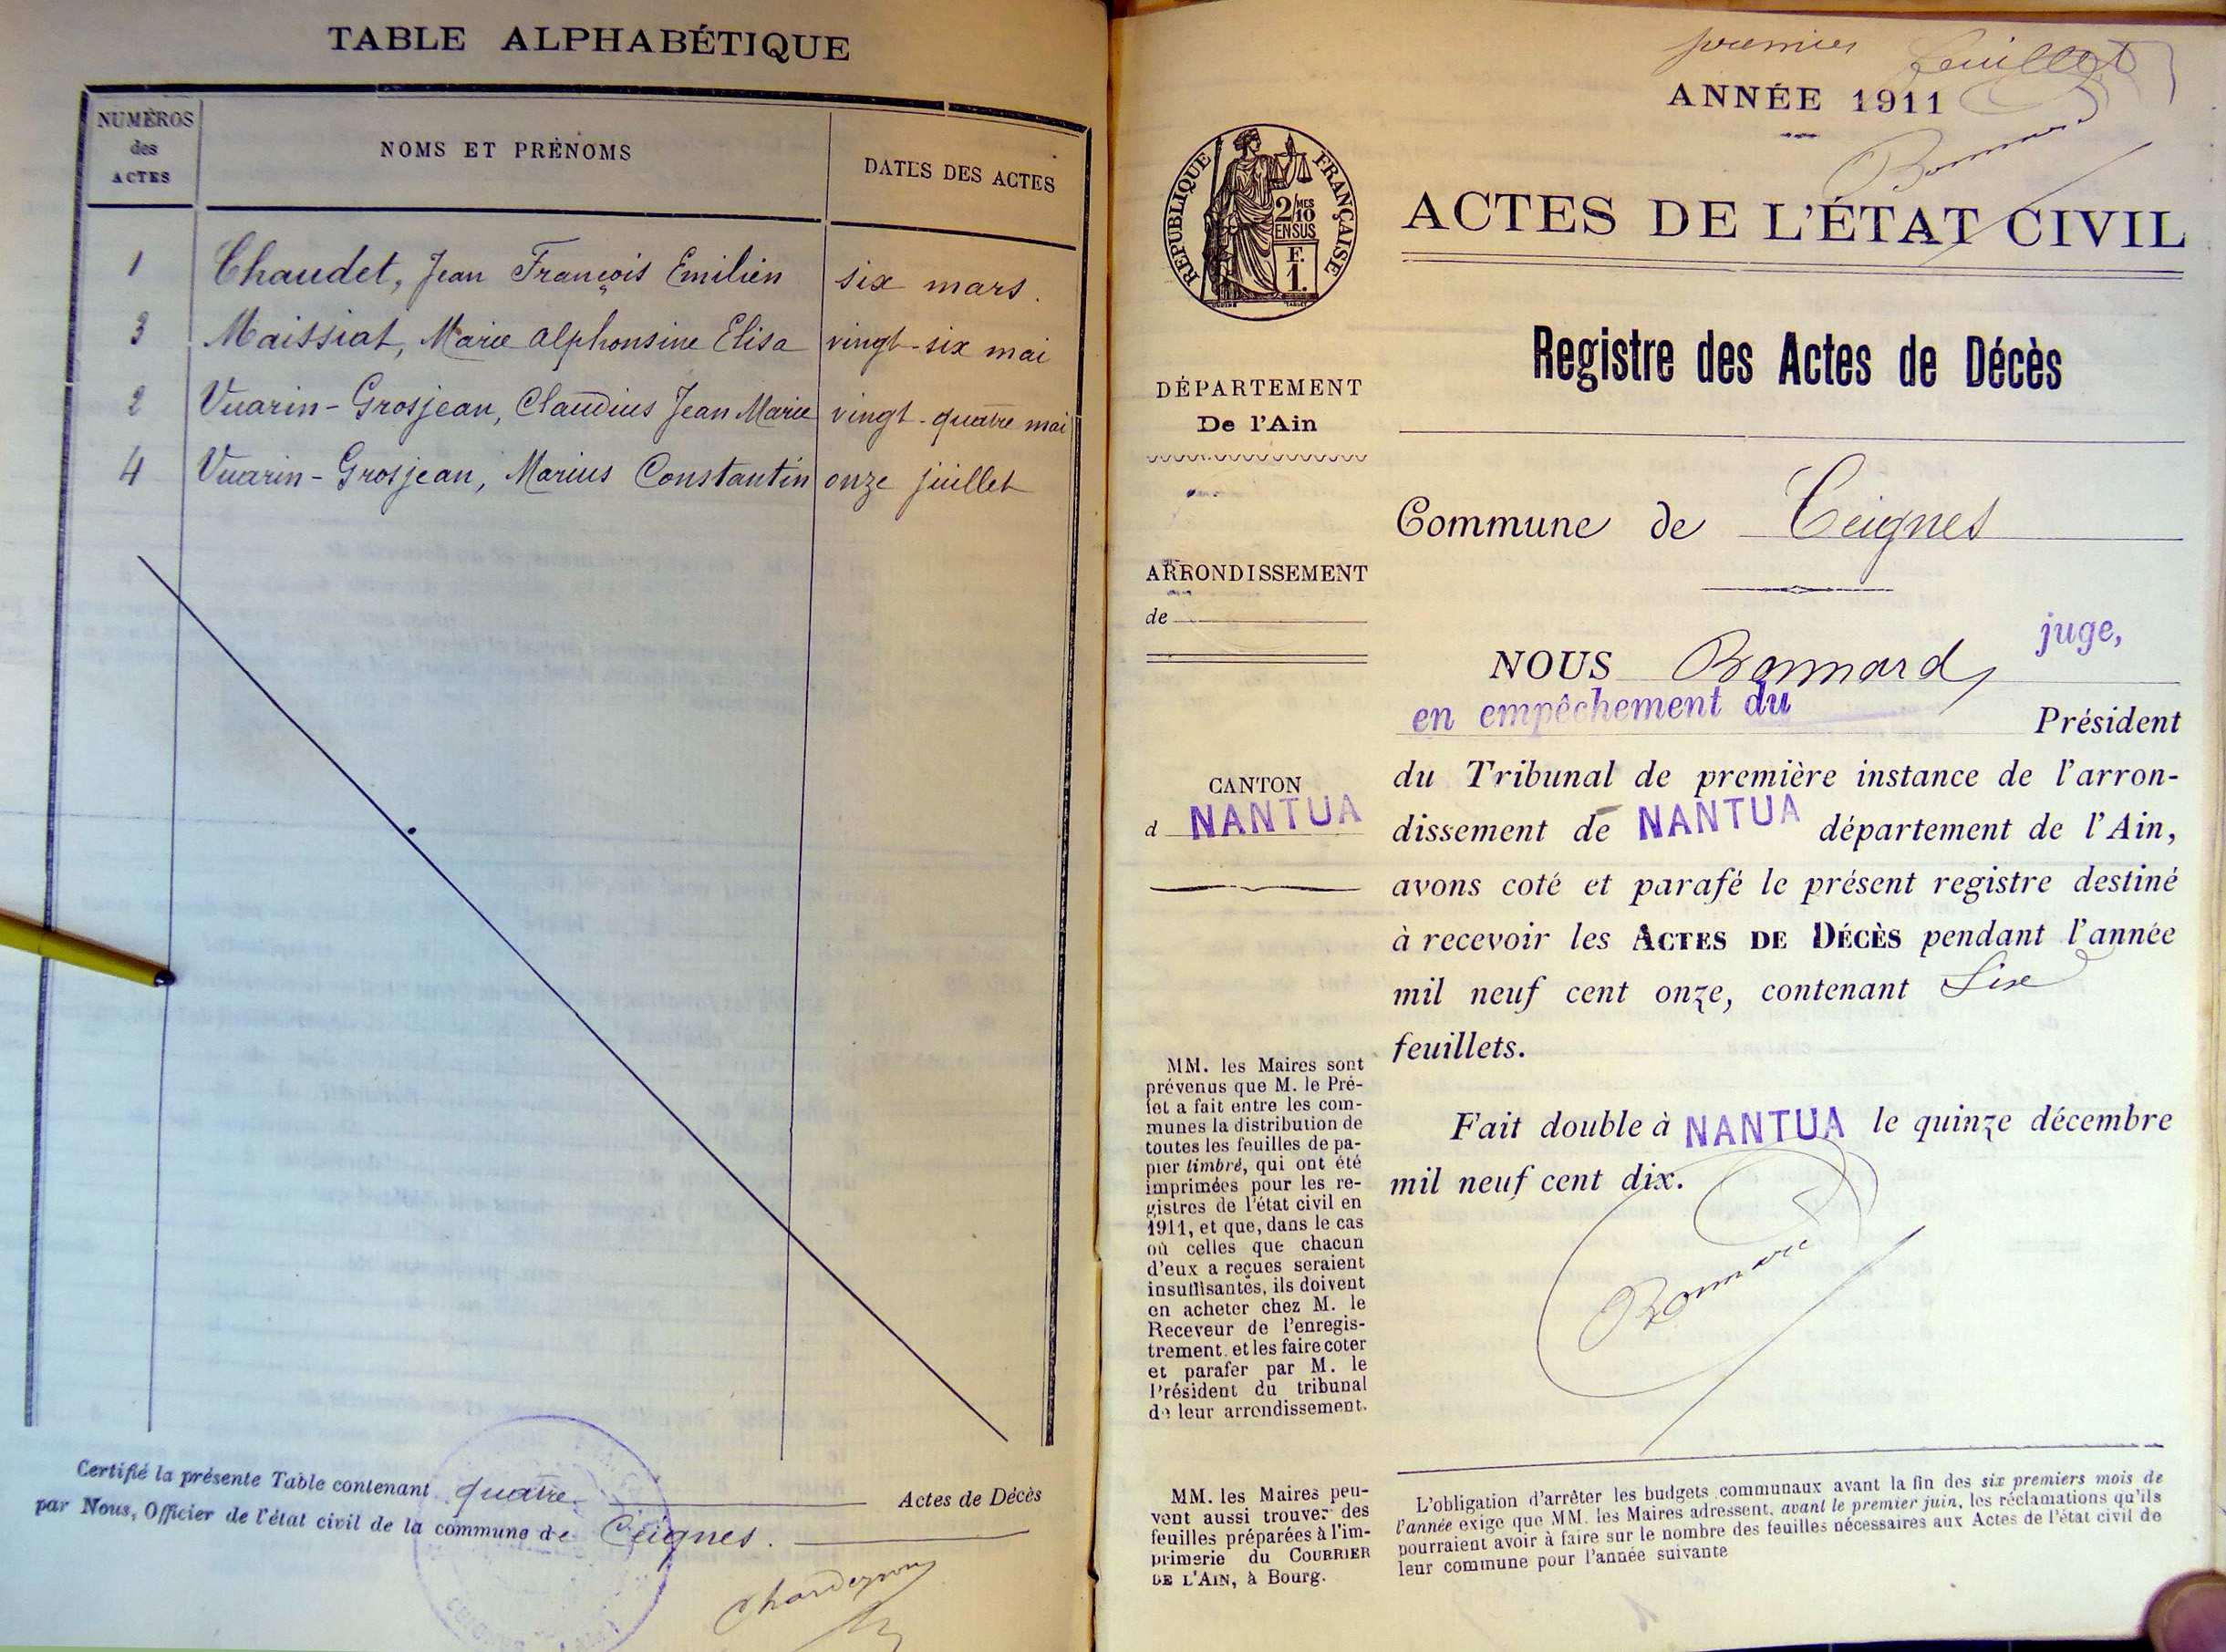 TABLE ALPHABÉTIQUE
NUMÉROS
des
ACTES
NOMS ET PRÉNOMS
DATES DES ACTES
1 Chaudet, Jean François Emilien six mars.
3 Maissiat, Marie Alphonsine Elisa vingt-six mai
2 Vuarin-Grosjean, Claudius Jean Marie vingt-quatre mai
4 Vuarin-Grosjean, Marius Constantin onze juillet
Certifié la présente Table contenant quatre Actes de Décès
par Nous, Officier de l'état civil de la commune de Ceignes.
premier feuillet
ANNÉE 1911
ACTES DE L'ÉTAT CIVIL
RÉPUBLIQUE FRANÇAISE
2/MES
10
EN SUS
F.
1.
Registre des Actes de Décès
DÉPARTEMENT
De l'Ain
Commune de Ceignes
ARRONDISSEMENT
de
NOUS Bonnard, juge,
en empêchement du Président
CANTON
d NANTUA
du Tribunal de première instance de l'arron-
dissement de NANTUA département de l'Ain,
avons coté et parafé le présent registre destiné
à recevoir les ACTES DE DÉCÈS pendant l'année
mil neuf cent onze, contenant Six
feuillets.
Fait double à NANTUA le quinze décembre
mil neuf cent dix.
Bonnard
MM. les Maires sont
prévenus que M. le Pré-
fet a fait entre les com-
munes la distribution de
toutes les feuilles de pa-
pier timbré, qui ont été
imprimées pour les re-
gistres de l'état civil en
1911, et que, dans le cas
où celles que chacun
d'eux a reçues seraient
insuffisantes, ils doivent
en acheter chez M. le
Receveur de l'enregis-
trement, et les faire coter
et parafer par M. le
Président du tribunal
de leur arrondissement.
MM. les Maires peu-
vent aussi trouver des
feuilles préparées à l'im-
primerie du COURRIER
DE L'AIN, à Bourg.
L'obligation d'arrêter les budgets communaux avant la fin des six premiers mois de
l'année exige que MM. les Maires adressent, avant le premier juin, les réclamations qu'ils
pourraient avoir à faire sur le nombre des feuilles nécessaires aux Actes de l'état civil de
leur commune pour l'année suivante